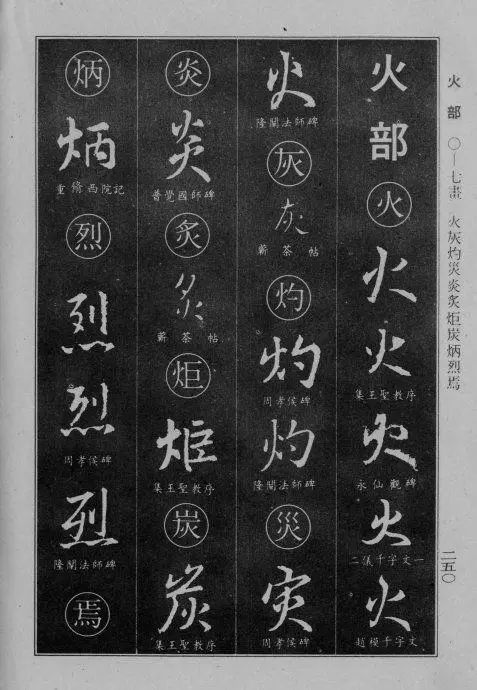 火部 〇—七畫 火灰灼災炎炙炬炭炳烈焉
二五〇
火部
火
火
火
集王聖教序
火
永仙觀碑
火
二儀千字文一
火
趙模千字文
火
隆闡法師碑
灰
灰
蘄茶帖
灼
灼
周孝侯碑
灼
隆闡法師碑
災
災
周孝侯碑
炎
炎
普覺國師碑
炙
炙
蘄茶帖
炬
炬
集王聖教序
炭
炭
集王聖教序
炳
炳
重脩西院記
烈
烈
烈
周孝侯碑
烈
隆闡法師碑
焉